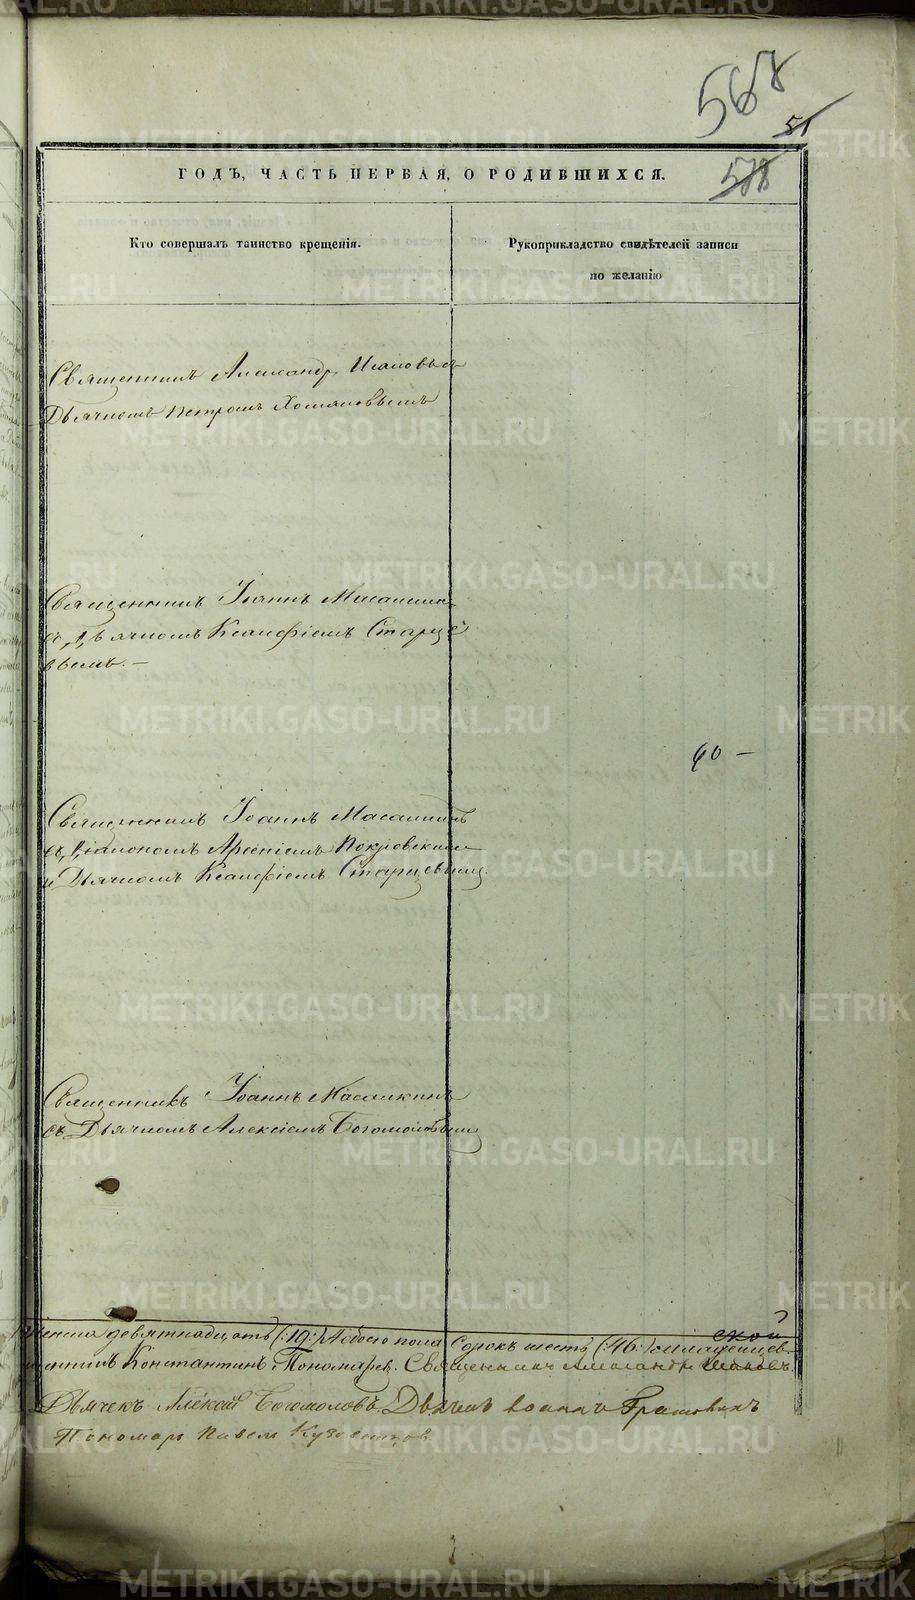 568
51
578
ГОДЪ, ЧАСТЬ ПЕРВАЯ, О РОДИВШИХСЯ.
Кто совершалъ таинство крещенія.
Рукоприкладство свидѣтелей записи
по желанію
Священникъ Александръ
Дьячкомъ Петромъ Хомяковымъ
Священникъ Іоаннъ Масалкинъ
съ Дьячкомъ Ксанфіемъ Старце
вымъ. —
60 —
Священникъ Іоаннъ Масалкинъ
съ Діакономъ Арсеніемъ Покровскимъ
и Дьячкомъ Ксанфіемъ Старцевымъ.
Священникъ Іоаннъ Масалкинъ
съ Дьячкомъ Алексіемъ Богомоловымъ
девятнадцать (:19:) Обоего пола Сорокъ шесть (:46:)
Константинъ Пономаревъ. Священникъ Александръ
Дьячекъ Алексій Богомоловъ Дьячекъ Іоаннъ
Пономарь Павелъ Кузовниковъ.
METRIKI.GASO-URAL.RU